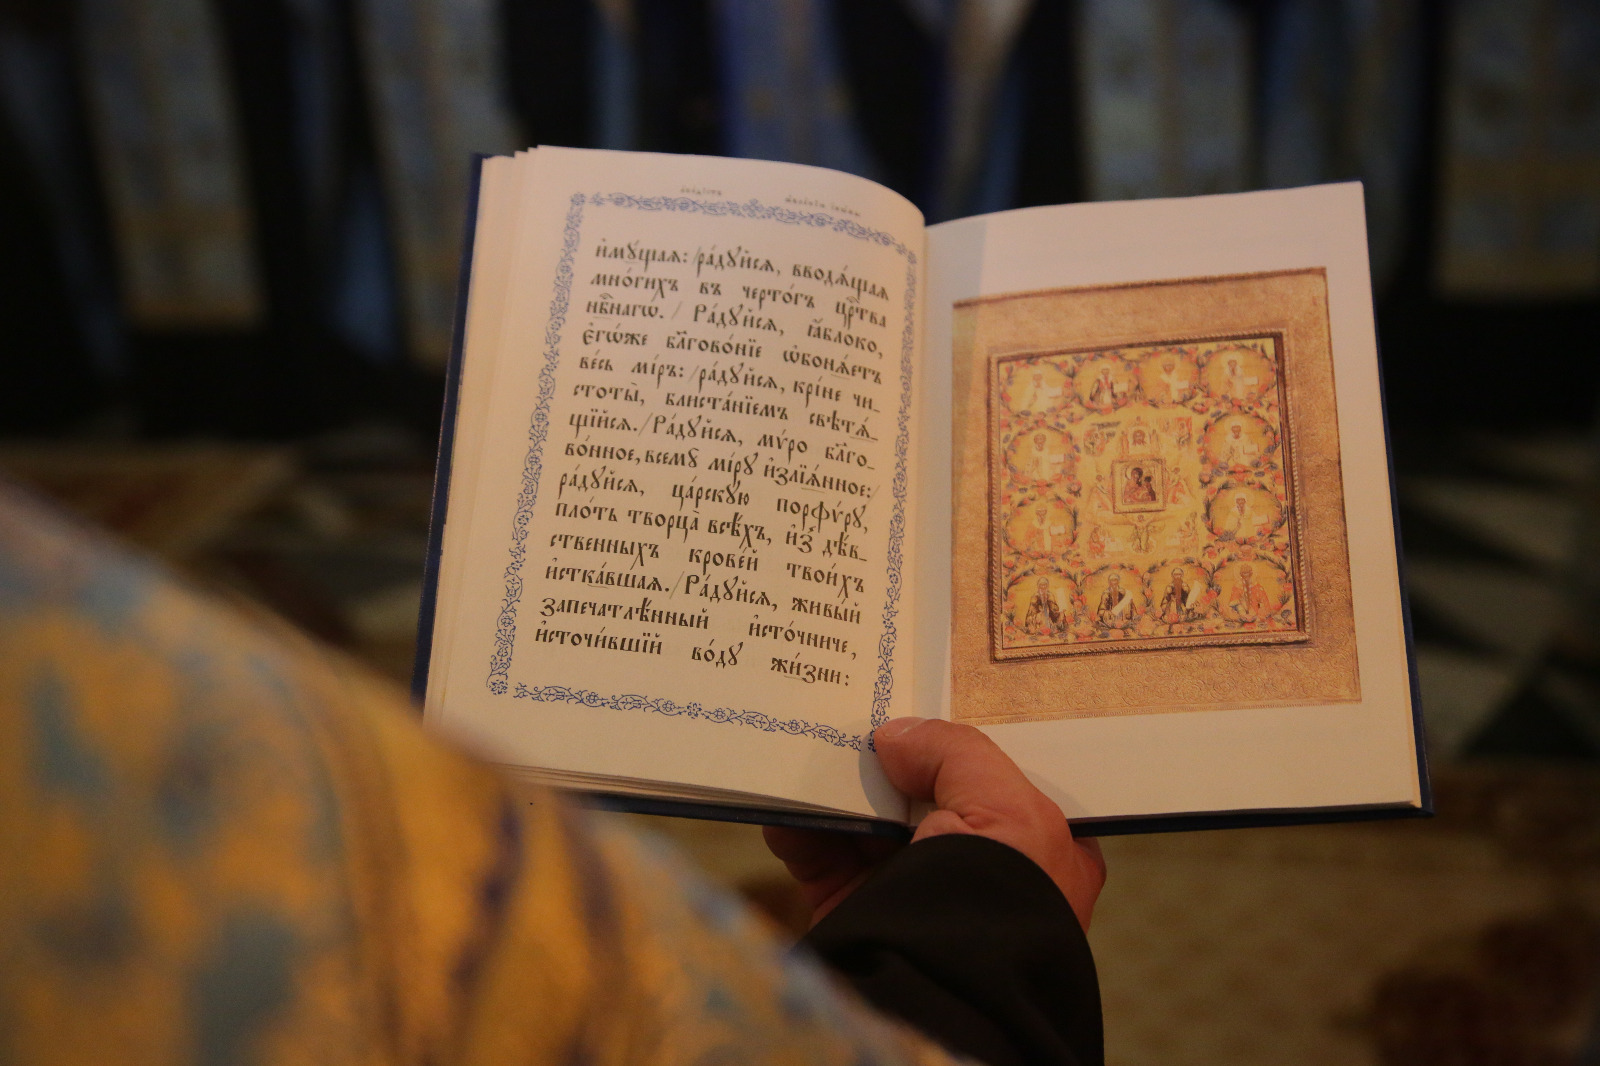 и҆мꙋ́щаѧ: / ра́дꙋйсѧ, вводѧ́щаѧ
мно́гихъ въ черто́гъ црⷭ҇тва
нбⷭ҇нагѡ. / Ра́дꙋйсѧ, ꙗ҆́блоко,
є҆гѡ́же бл҃гово́нїе ѡ҆бонѧ́етъ
ве́сь мі́ръ: / ра́дꙋйсѧ, крі́не чи-
стоты̀, блиста́нїемъ свѣтѧ́-
щїйсѧ. / Ра́дꙋйсѧ, мѵ́ро бл҃го-
во́нное, всемꙋ̀ мі́рꙋ и҆злїѧ́нное: /
ра́дꙋйсѧ, ца́рскꙋю порфѵ́рꙋ,
пло́ть творца̀ всѣ́хъ, и҆з̾ дѣ́в-
ственныхъ крове́й твои́хъ
и҆стка́вшаѧ. / Ра́дꙋйсѧ, живы́й
запечатлѣ́нный и҆сто́чниче,
и҆сточи́вшїй во́дꙋ жи́зни: